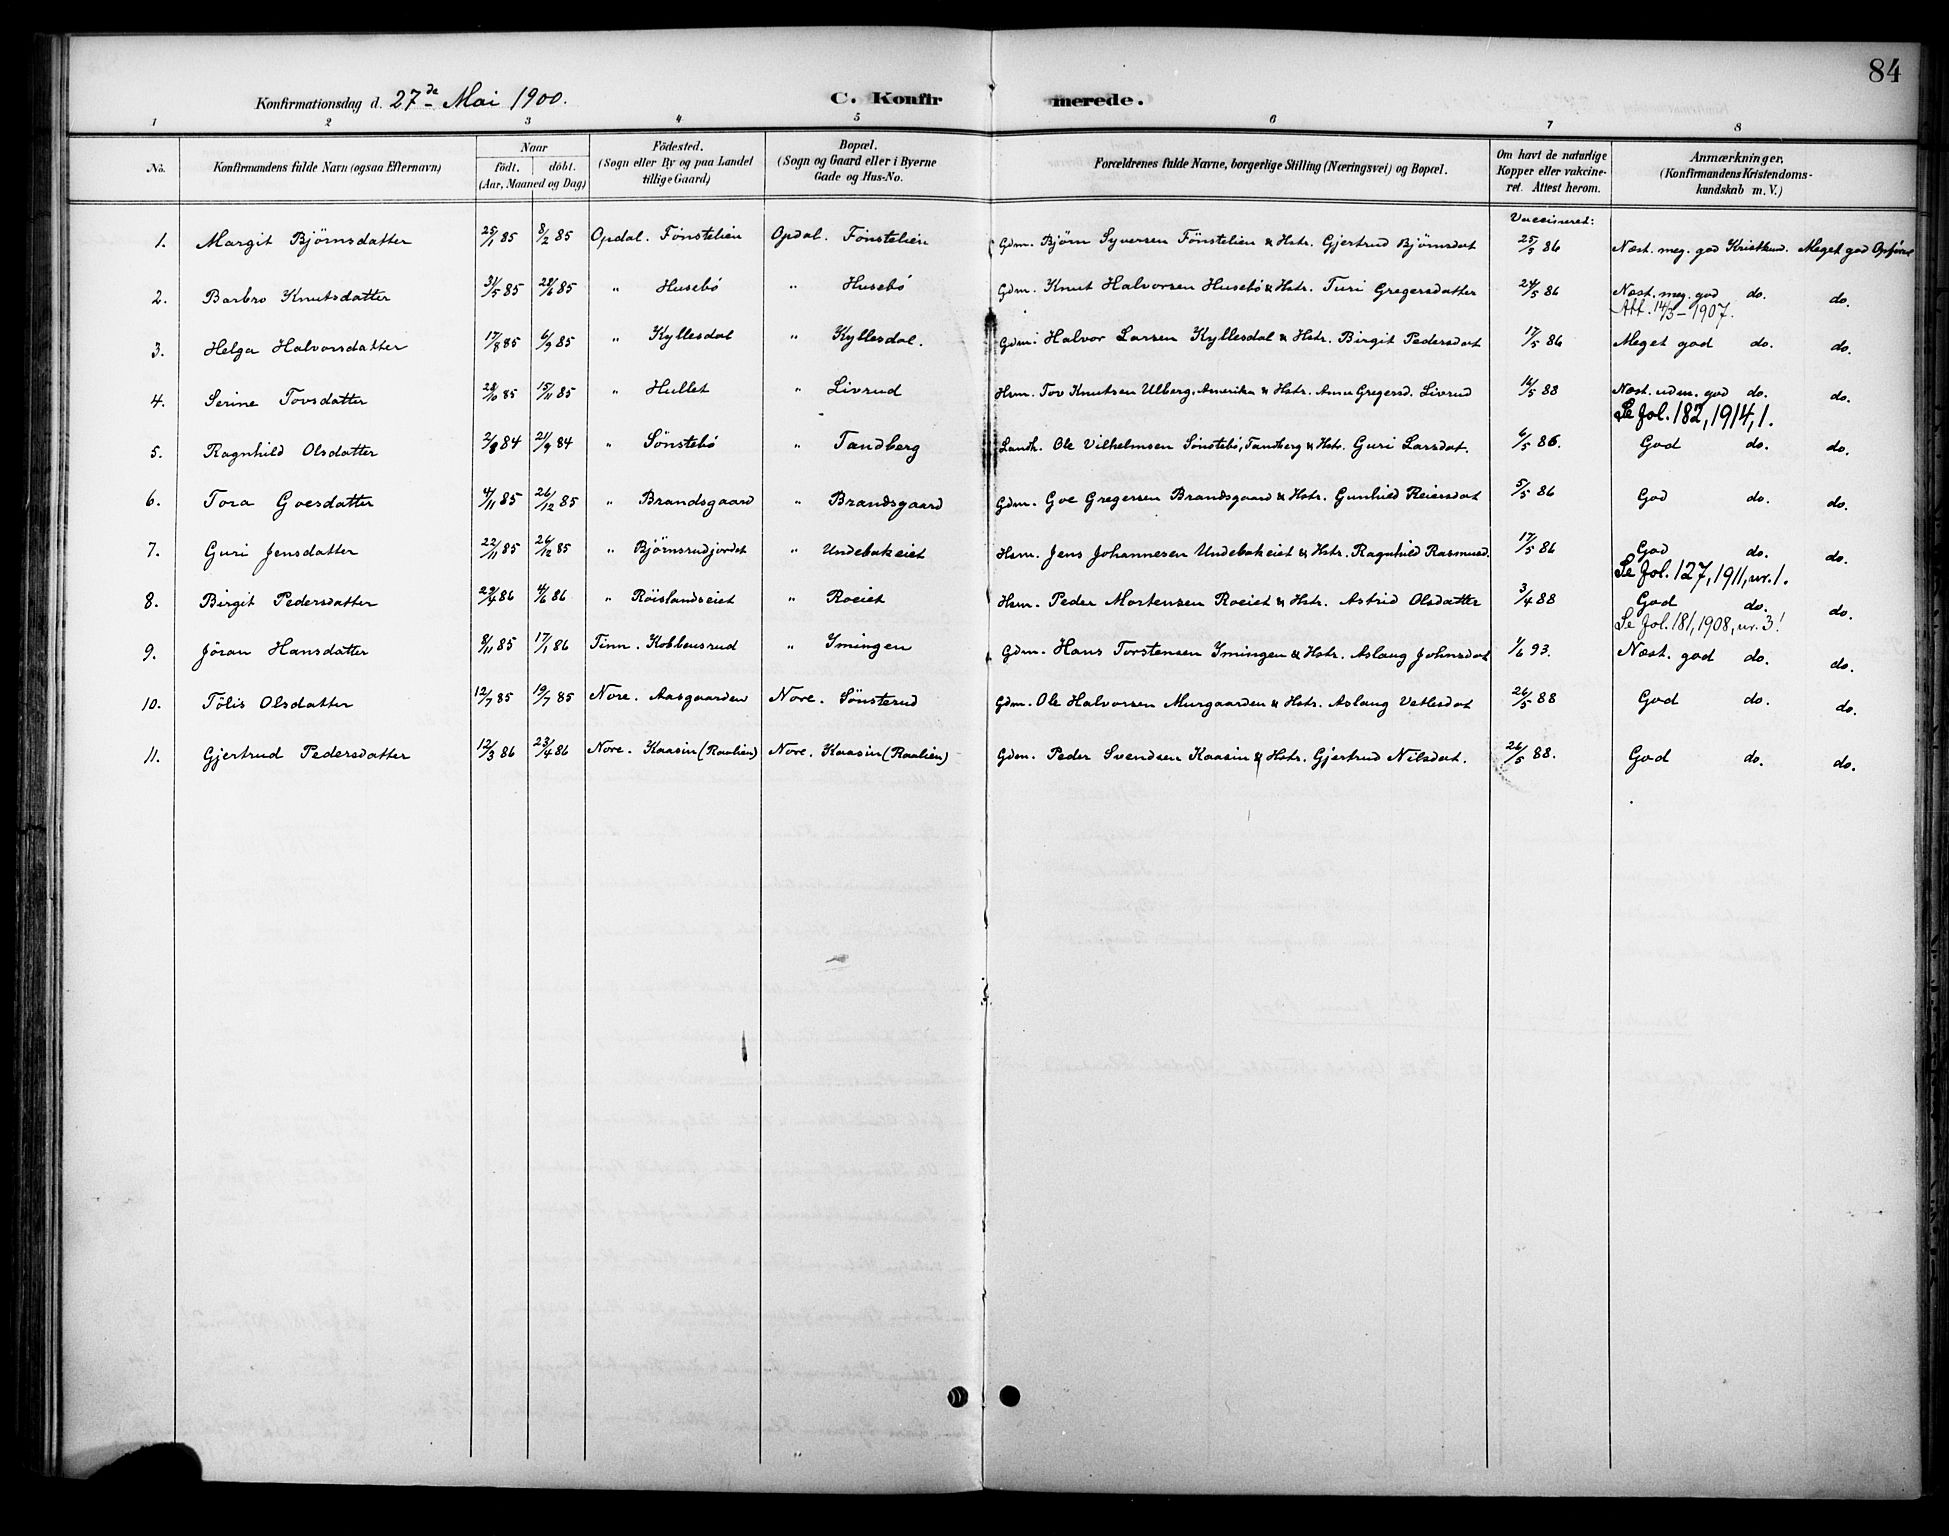 84
Konfirmationsdag d. 27de Mai 1900. C. Konfirmerede.
1 2 3 4 5 6 7 8
No. Konfirmandens fulde Navn (ogsaa Efternavn) Naar født. døbt. (Aar, Maaned og Dag) Fødested. (Sogn eller By og paa Landet tillige Gaard) Bopæl. (Sogn og Gaard eller i Byerne Gade og Hus-No. Forældrenes fulde Navne, borgerlige Stilling (Næringsvei) og Bopæl. Om havt de naturlige Kopper eller vakcineret. Attest herom. Anmærkninger, (Konfirmandens Kristendomskundskab m. V.)
Vaccineret:
1. Margit Bjørnsdatter 25/1 85 8/2 85 Opdal. Fönstelien Opdal. Fönstelien Gdm. Bjørn Syversen Fönstelien & Hstr. Gjertrud Bjørnsdat 25/5 86 Næst. meg. god Kristkund. Meget god Opførsel
2. Barbro Knutsdatter 31/5 85 28/6 85 " Husebö " Husebö Gdm. Knut Halvorsen Husebö & Hstr. Turi Gregersdatter 24/5 86 Næst. meg. god do. do.
Att. 14/3-1907.
3. Helga Halvorsdatter 17/8 85 6/9 85 " Kyllesdal " Kyllesdal. Gdm. Halvor Larsen Kyllesdal & Hstr. Birgit Pedersdat 17/5 86 Meget god do. do.
4. Serine Tovsdatter 28/10 85 15/11 85 " Hullet " Livrud Hsm. Tov Knutsen Ulberg, Amerika & Hstr. Anne Gregersd. Livrud 16/5 88 Næst. udm. god do. do.
Se fol. 182, 1914, 1.
5. Ragnhild Olsdatter 2/8 84 21/9 84 " Sönstebö " Tandberg Landh. Ole Vilhelmsen Sönstebö, Tandberg & Hstr. Guri Larsdat. 6/5 86. God do. do.
6. Tora Goesdatter 4/11 85 26/12 85 " Brandsgaard " Brandsgaard Gdm. Goe Gregersen Brandsgaard & Hstr. Gunhild Reiersdat 5/5 86 God do. do.
7. Guri Jensdatter 22/11 85 26/12 85 " Bjørnsrudjordet " Undebakeiet Hsm. Jens Johannesen Undebakeiet & Hstr. Ragnhild Rasmusd. 17/5 86 God do. do.
Se fol. 127, 1911, nr. 1.
8. Birgit Pedersdatter 29/4 86 4/6 86 " Röislandseiet " Roeiet Hsm. Peder Mortensen Roeiet & Hstr. Astrid Olsdatter 3/4 88 God do. do.
Se fol. 181, 1908, nr. 3!
9. Jöran Hansdatter 8/11 85 17/1 86 Tinn. Kobbensrud " Ymingen Gdm. Hans Torstensen Ymingen & Hstr. Aslaug Johnsdat 1/6 93. Næst. god do. do.
10. Tölis Olsdatter 12/7 85 19/7 85 Nore. Aasgaarden Nore. Sönsterud Gdm. Ole Halvorsen Murgaarden & Hstr. Aslaug Vetlesdat 26/5 88 God do. do.
11. Gjertrud Pedersdatter 12/3 86 23/4 86 Nore. Kaasin (Raalien) Nore. Kaasin (Raalien) Gdm. Peder Svendsen Kaasin & Hstr. Gjertrud Nilsdat. 26/5 88. God do. do.